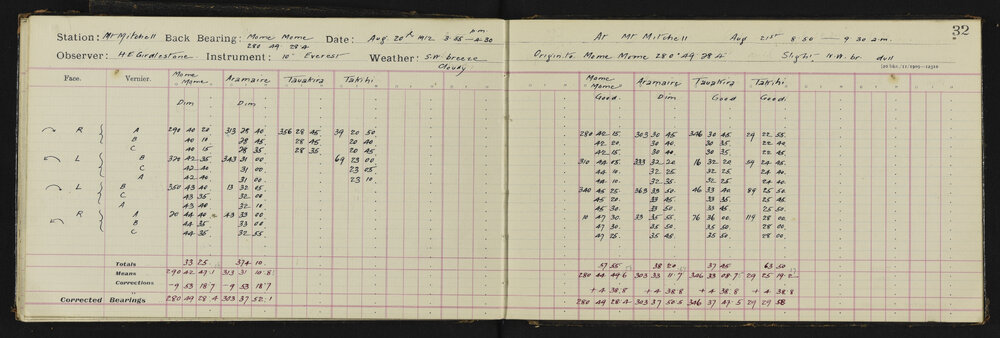 Station: Mt Mitchell Back Bearing: Mome Mome 280 49 28.4 Date: Aug. 20th 1912 3.55 — 4.30 p.m.
Observer: H E Girdlestone Instrument: 10" Everest Weather: S.W. breeze Cloudy
Face. Vernier. Mome Mome Aramaire Tauakira Takihi
Dim Dim
R A 290 40 20 313 28 40 356 28 45 39 20 50
B 40 10 28 45 28 45 20 40
C 40 15 28 35 28 35 20 45
L B 320 42 35 343 31 00 69 23 00
C 42 40 31 00 23 05
A 42 40 31 00 23 10
L B 350 43 40 13 32 05
C 43 35 32 00
A 43 40 32 10
R A 20 44 40 43 33 00
B 44 35 33 00
C 44 35 32 55
Totals 33 25 374 10
Means 290 42 47.1 313 31 10.8
Corrections -9 53 18.7 -9 53 18.7
Corrected Bearings 280 49 28.4 303 37 52.1
32
At Mt Mitchell Aug 21st 8.50 — 9.30 a.m.
Origin to Mome Mome 280° 49 28.4 Slight N.W. br dull
Mome Mome Aramaire Tauakira Takihi
Good. Dim Good Good.
280 42 15 303 30 45 346 30 45 29 22 55
42 20 30 40 30 35 22 40
42 15 30 40 30 35 22 45
310 44 05 333 32 20 16 32 20 59 24 45
44 10 32 25 32 25 24 40
44 10 32 35 32 25 24 40
340 45 25 363 33 50 46 33 40 89 25 50
45 20 33 45 33 35 25 45
45 30 33 50 33 45 25 50
10 47 30 33 35 55 76 36 00 119 28 00
47 30 35 50 35 50 28 00
47 25 35 45 35 50 28 00
57 55 38 20 37 45 63 50
280 44 49.6 303 33 11.7 346 33 08.7 29 25 19.2
+4 38.8 +4 38.8 +4 38.8 +4 38.8
280 49 28.4 303 37 50.5 346 37 47.5 29 29 58